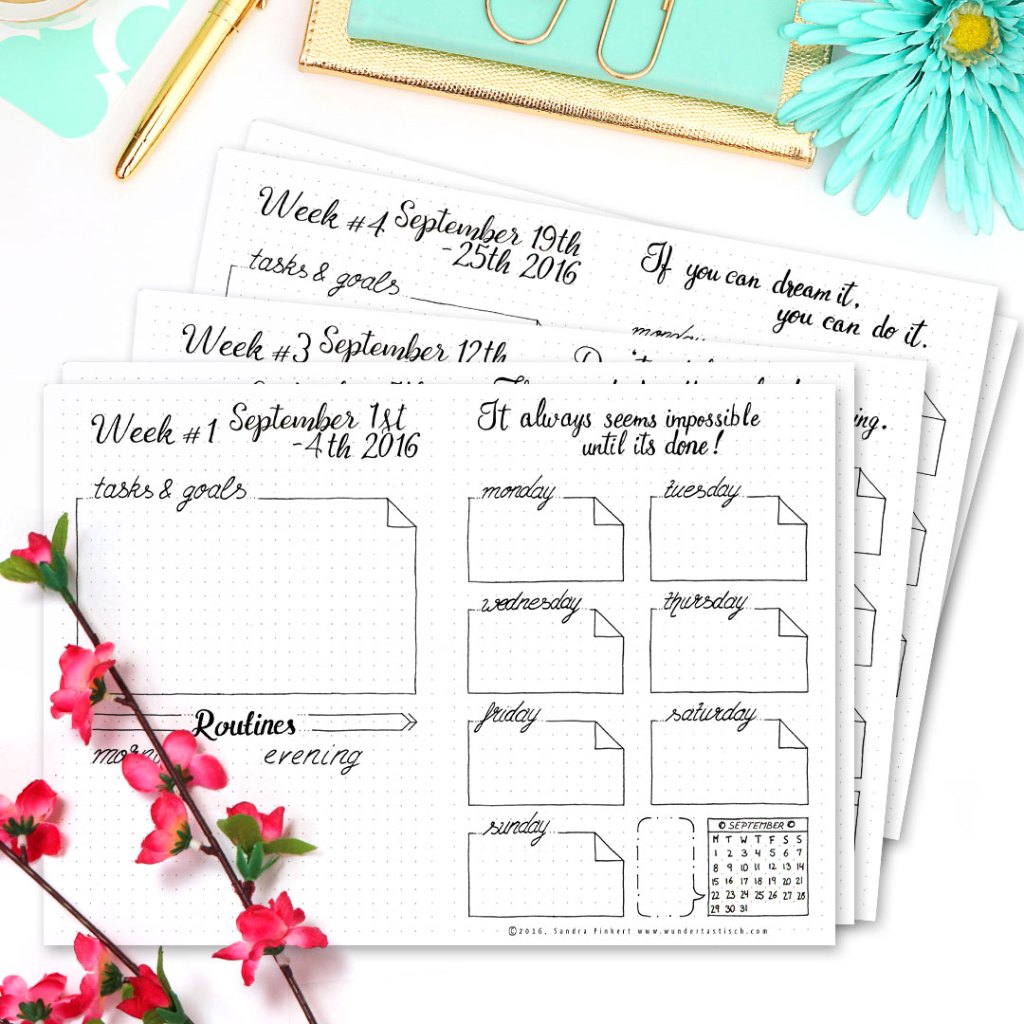 Week #4 September 19th
-25th 2016
If you can dream it,
you can do it.
tasks & goals
monday
Week #3 September 12th
ing.
Week #1 September 1st
-4th 2016
It always seems impossible
until its done!
tasks & goals
monday
tuesday
wednesday
thursday
Routines
morn
evening
friday
saturday
sunday
SEPTEMBER
M T W T F S S
1 2 3 4 5 6 7
8 9 10 11 12 13 14
15 16 17 18 19 20 21
22 23 24 25 26 27 28
29 30 31
©2016, Sandra Pinkert www.wundertastisch.com